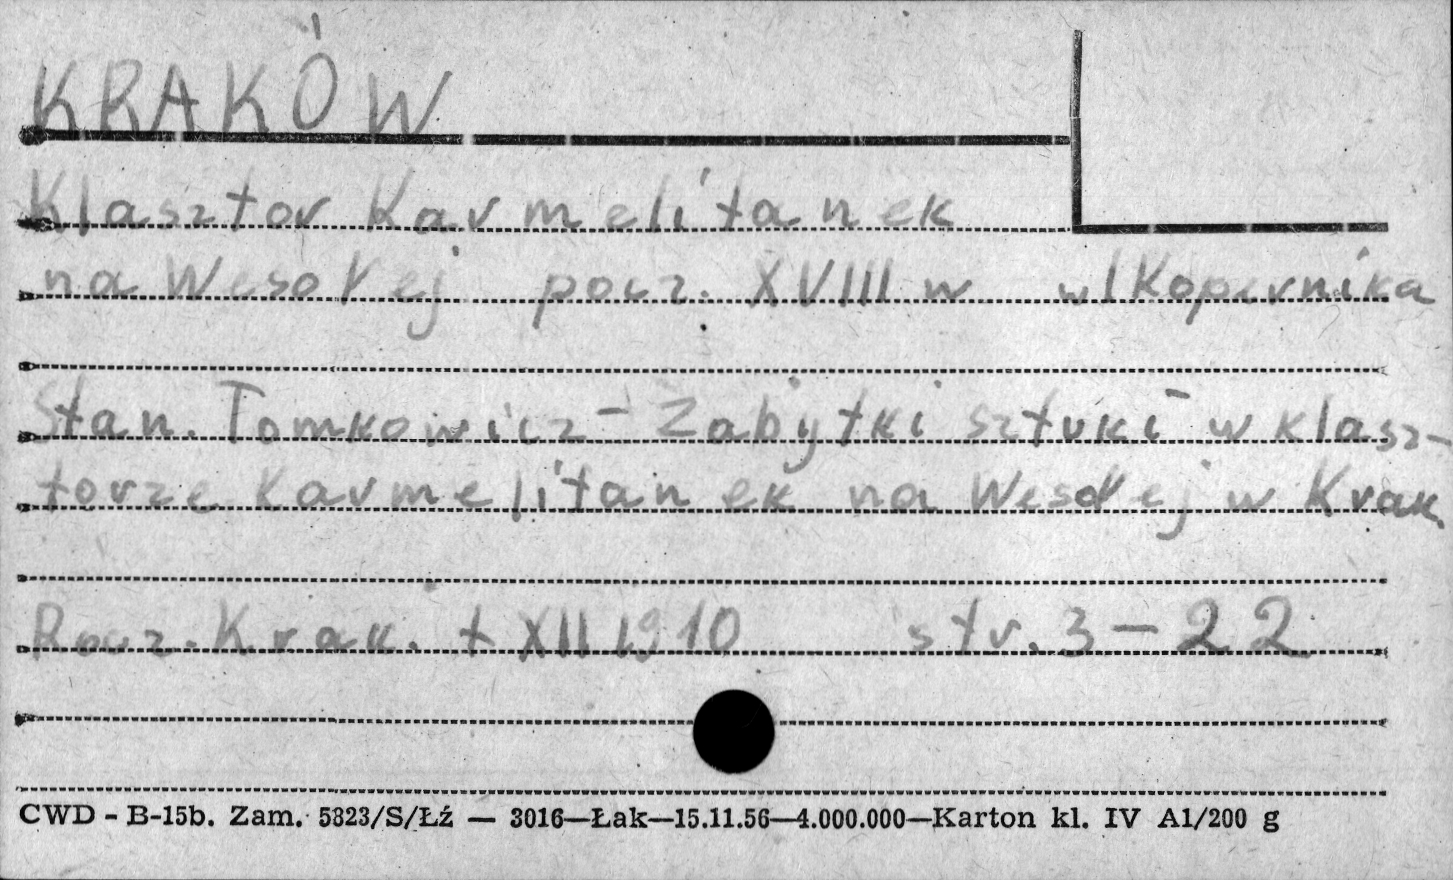 KRAKÓW
Klasztor Karmelitanek
na Wesołej pocz. XVIII w ul Kopernika
Stan. Tomkowicz - Zabytki sztuki w klasz-
torze Karmelitanek na Wesołej w Krak.
Rocz. Krak. t XII 1910 str. 3-22
CWD - B-15b. Zam. 5823/S/Łź — 3016—Łak—15.11.56—4.000.000—Karton kl. IV A1/200 g